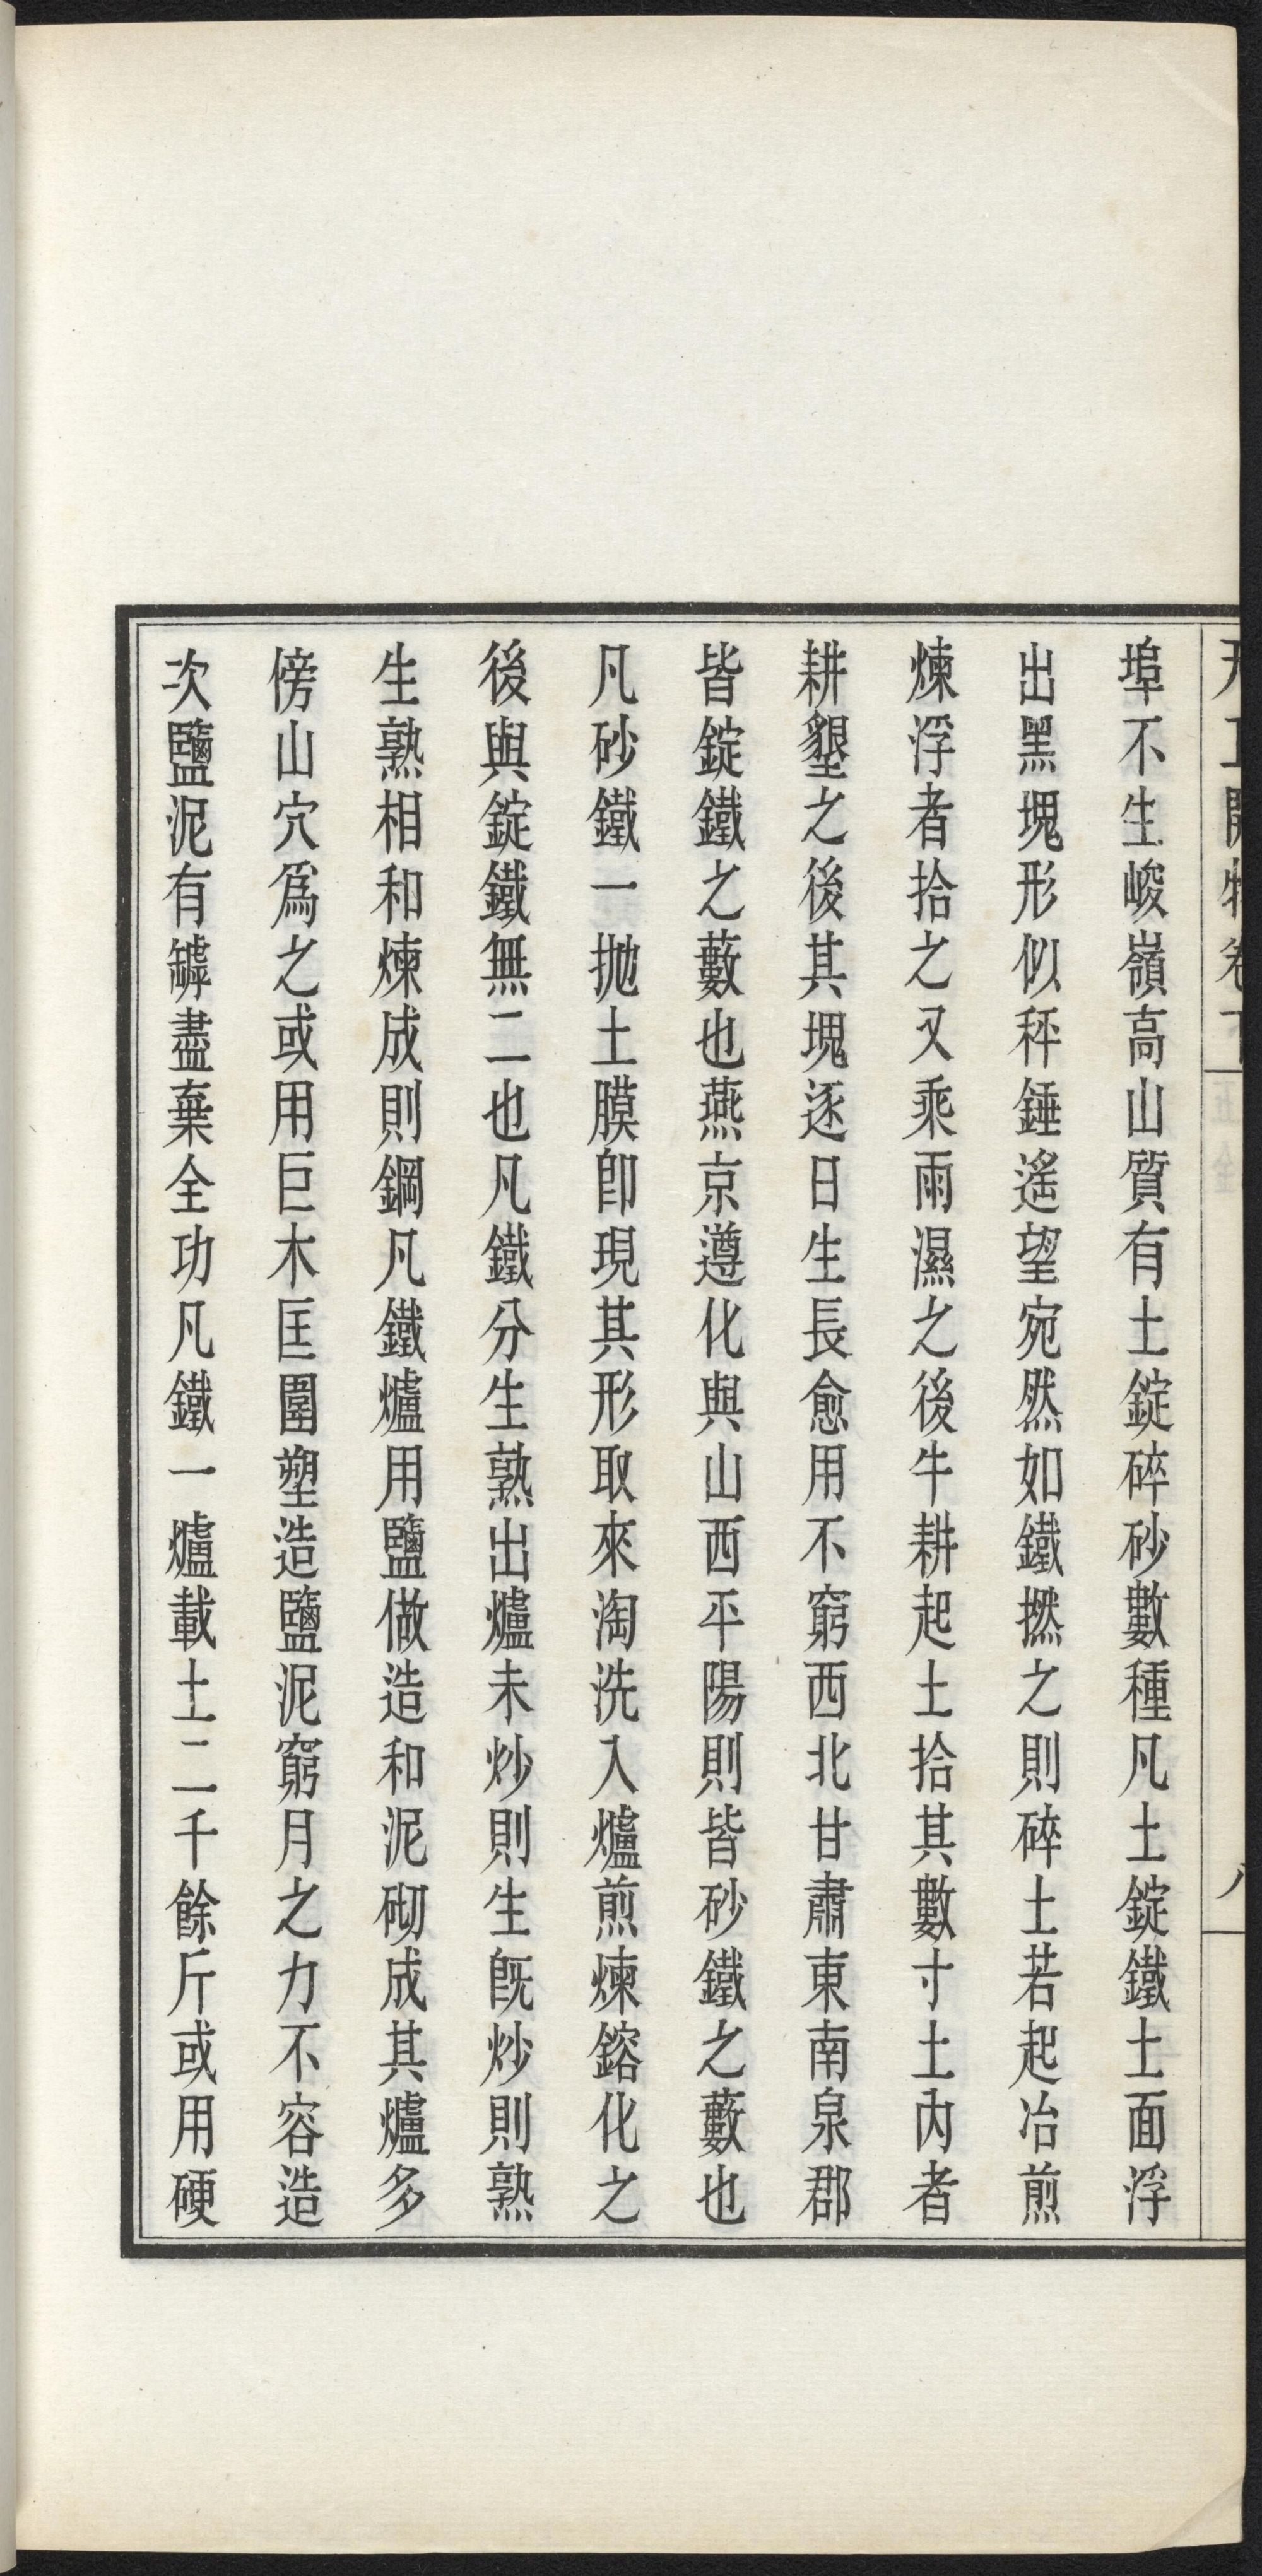 天工開物卷下 八
埠不生峻嶺高山質有土錠碎砂數種凡土錠鐵土面浮
出黑塊形似秤錘遙望宛然如鐵撚之則碎土若起冶煎
煉浮者拾之又乘雨濕之後牛耕起土拾其數寸土內者
耕墾之後其塊逐日生長愈用不窮西北甘肅東南泉郡
皆錠鐵之藪也燕京遵化與山西平陽則皆砂鐵之藪也
凡砂鐵一拋土膜卽現其形取來淘洗入爐煎煉鎔化之
後與錠鐵無二也凡鐵分生熟出爐未炒則生旣炒則熟
生熟相和煉成則鋼凡鐵爐用鹽做造和泥砌成其爐多
傍山穴爲之或用巨木匡圍塑造鹽泥窮月之力不容造
次鹽泥有罅盡棄全功凡鐵一爐載土二千餘斤或用硬